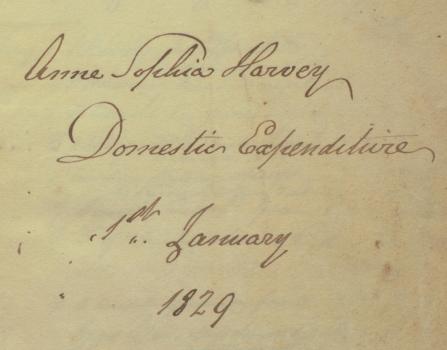 Anne Sophia Harvey
Domestic Expenditure
1st January
1829